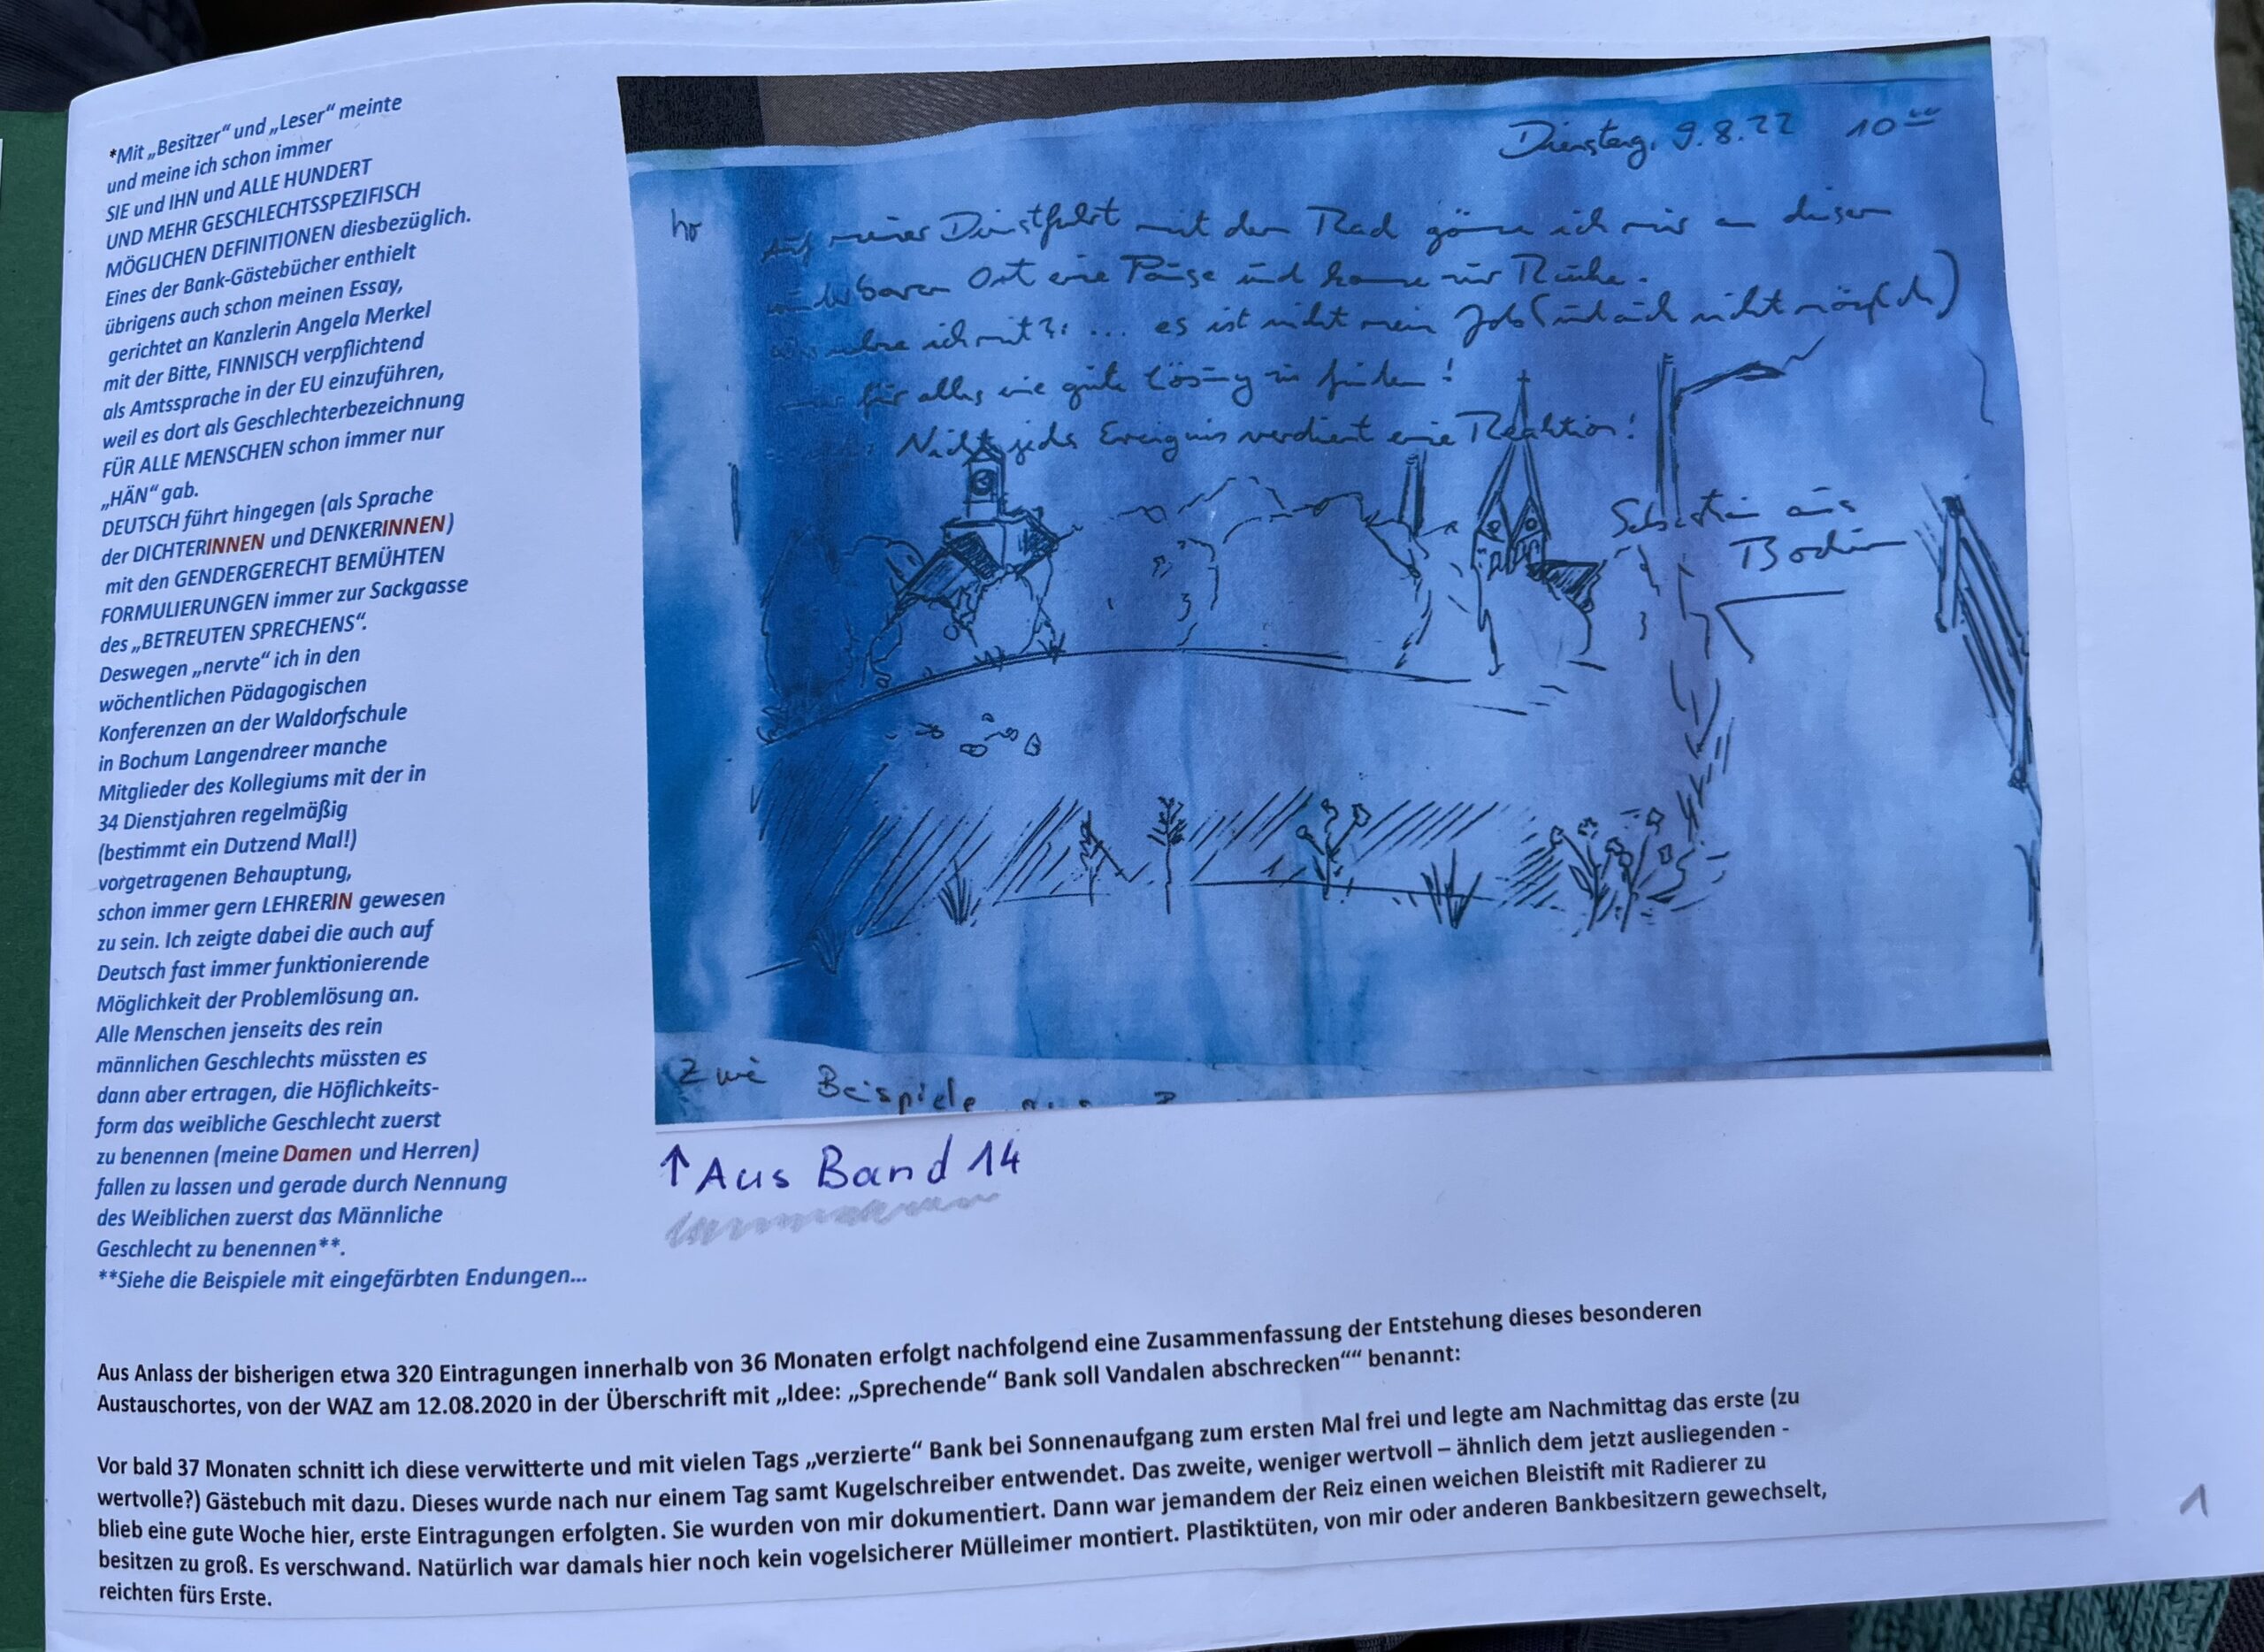 *Mit „Besitzer“ und „Leser“ meinte
und meine ich schon immer
SIE und IHN und ALLE HUNDERT
UND MEHR GESCHLECHTSSPEZIFISCH
MÖGLICHEN DEFINITIONEN diesbezüglich.
Eines der Bank-Gästebücher enthielt
übrigens auch schon meinen Essay,
gerichtet an Kanzlerin Angela Merkel
mit der Bitte, FINNISCH verpflichtend
als Amtssprache in der EU einzuführen,
weil es dort als Geschlechterbezeichnung
FÜR ALLE MENSCHEN schon immer nur
„HÄN“ gab.
DEUTSCH führt hingegen (als Sprache
der DICHTERINNEN und DENKERINNEN)
mit den GENDERGERECHT BEMÜHTEN
FORMULIERUNGEN immer zur Sackgasse
des „BETREUTEN SPRECHENS“.
Deswegen „nervte“ ich in den
wöchentlichen Pädagogischen
Konferenzen an der Waldorfschule
in Bochum Langendreer manche
Mitglieder des Kollegiums mit der in
34 Dienstjahren regelmäßig
(bestimmt ein Dutzend Mal!)
vorgetragenen Behauptung,
schon immer gern LEHRERIN gewesen
zu sein. Ich zeigte dabei die auch auf
Deutsch fast immer funktionierende
Möglichkeit der Problemlösung an.
Alle Menschen jenseits des rein
männlichen Geschlechts müssten es
dann aber ertragen, die Höflichkeits-
form das weibliche Geschlecht zuerst
zu benennen (meine Damen und Herren)
fallen zu lassen und gerade durch Nennung
des Weiblichen zuerst das Männliche
Geschlecht zu benennen**.
**Siehe die Beispiele mit eingefärbten Endungen...
Dienstag, 9.8.22 10⁰⁰
Auf meiner Dienstfahrt mit dem Rad gönne ich mir an diesem
wunderbaren Ort eine Pause und komme zur Ruhe.
ich mit?: ... es ist nicht mein Job (und auch nicht möglich)
für alles eine gute Lösung zu finden!
Nicht jedes Ereignis verdient eine Reaktion!
Sebastian aus
Bochum
Zwei Beispiele
↑ Aus Band 14
Aus Anlass der bisherigen etwa 320 Eintragungen innerhalb von 36 Monaten erfolgt nachfolgend eine Zusammenfassung der Entstehung dieses besonderen
Austauschortes, von der WAZ am 12.08.2020 in der Überschrift mit „Idee: „Sprechende“ Bank soll Vandalen abschrecken““ benannt:
Vor bald 37 Monaten schnitt ich diese verwitterte und mit vielen Tags „verzierte“ Bank bei Sonnenaufgang zum ersten Mal frei und legte am Nachmittag das erste (zu
wertvolle?) Gästebuch mit dazu. Dieses wurde nach nur einem Tag samt Kugelschreiber entwendet. Das zweite, weniger wertvoll – ähnlich dem jetzt ausliegenden -
blieb eine gute Woche hier, erste Eintragungen erfolgten. Sie wurden von mir dokumentiert. Dann war jemandem der Reiz einen weichen Bleistift mit Radierer zu
besitzen zu groß. Es verschwand. Natürlich war damals hier noch kein vogelsicherer Mülleimer montiert. Plastiktüten, von mir oder anderen Bankbesitzern gewechselt,
reichten fürs Erste.
1